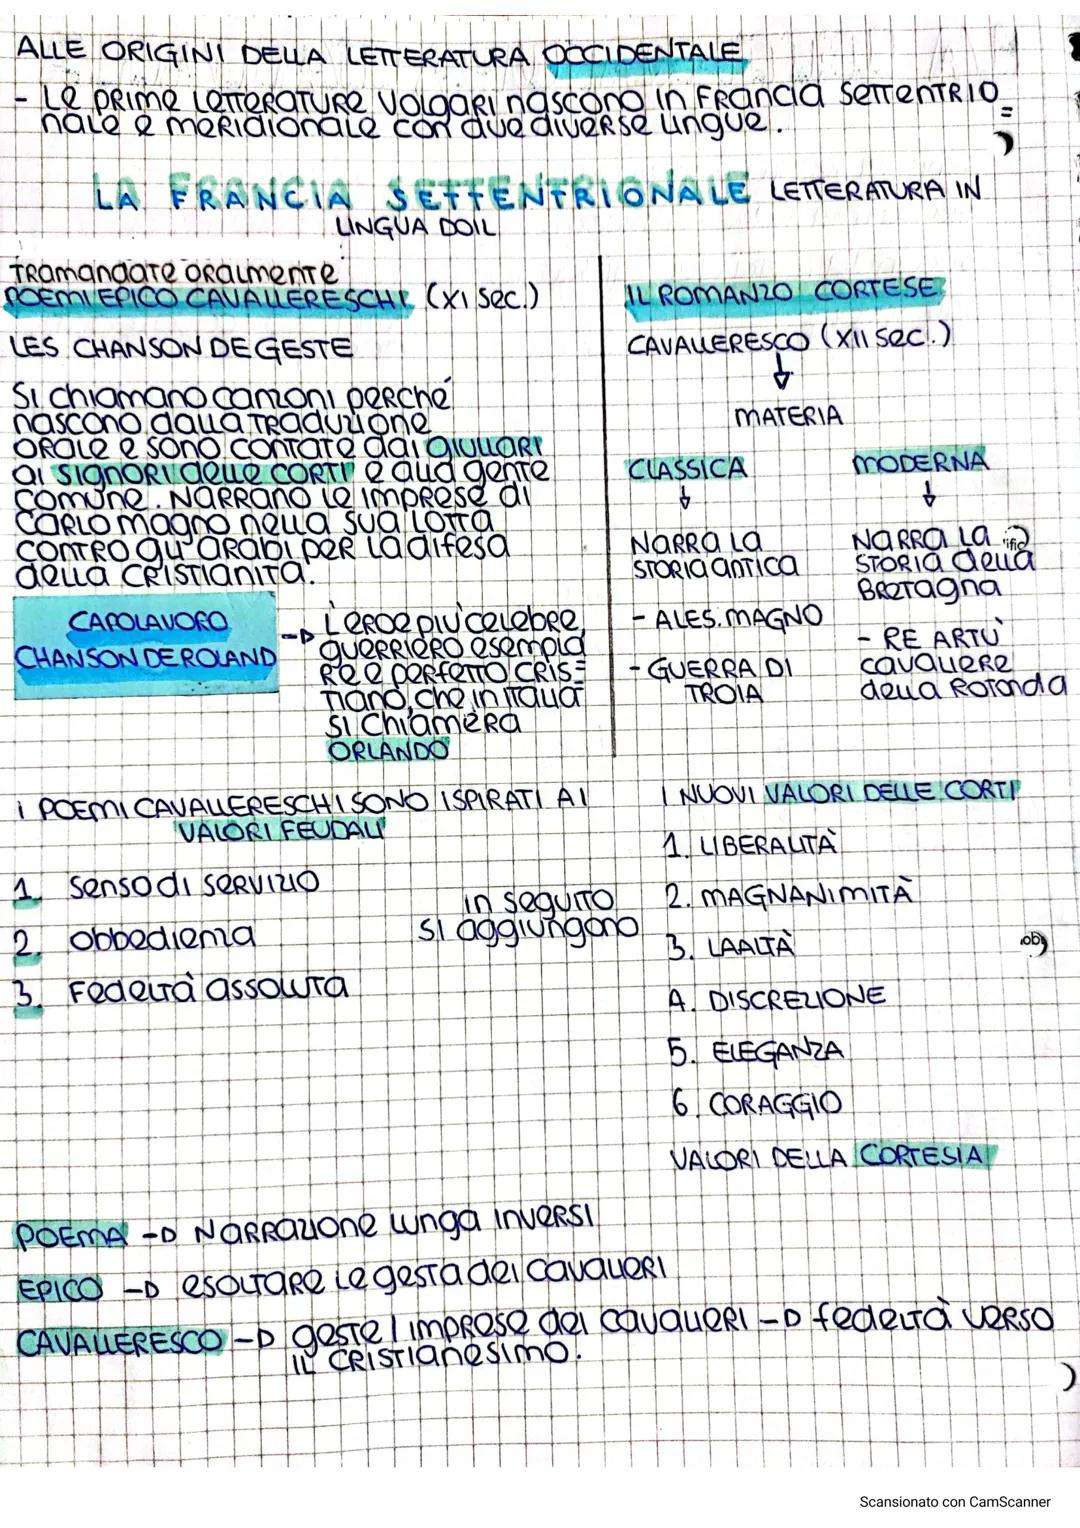 ALLE ORIGINI DELLA LETTERATURA OCCIDENTALE
- Le prime letterature volgari nascono in Francia settentrio=
nale e meridionale con due diverse lingue.
LA FRANCIA SETTENTRIONALE LETTERATURA IN
LINGUA DOIL
Tramandate oralmente
POEMI EPICO CAVALLERESCHI (XI sec.)
LES CHANSON DE GESTE
Si chiamano canzoni perché
nascono dalla traduzione
orale e sono contate dai giullari
ai signori delle corti e alla gente
comune. Narrano le imprese di
Carlo magno nella sua lotta
contro gli arabi per la difesa
della cristianità.
CAPOLAVORO
CHANSON DE ROLAND
L'eroe più celebre
guerriero esempla
re e perfetto cris=
tiano, che in Italia
si chiamerà
ORLANDO
IL ROMANZO CORTESE
CAVALLERESCO (XII sec.)
MATERIA
CLASSICA
NARRA LA
STORIA antica
- ALES. MAGNO
- GUERRA DI
TROIA
MODERNA
NARRA LA
STORIA della
Bretagna
- RE ARTÙ
cavaliere
della Rotonda
I POEMI CAVALLERESCHI SONO ISPIRATI AI
VALORI FEUDALI
1. Senso di servizio
2. Obbedienza
3. Fedeltà assoluta
in seguito
si aggiungono
I NUOVI VALORI DELLE CORTI
1. LIBERALITÀ
2. MAGNANIMITÀ
3. LAALTÀ
4. DISCREZIONE
5. ELEGANZA
6. CORAGGIO
VALORI DELLA CORTESIA
POEMA -D Narrazione lunga inversi
EPICO -D esoltare le gesta dei cavalieri
CAVALLERESCO -D geste / imprese dei cavalieri -D fedeltà verso
il cristianesimo.
Scansionato con CamScanner